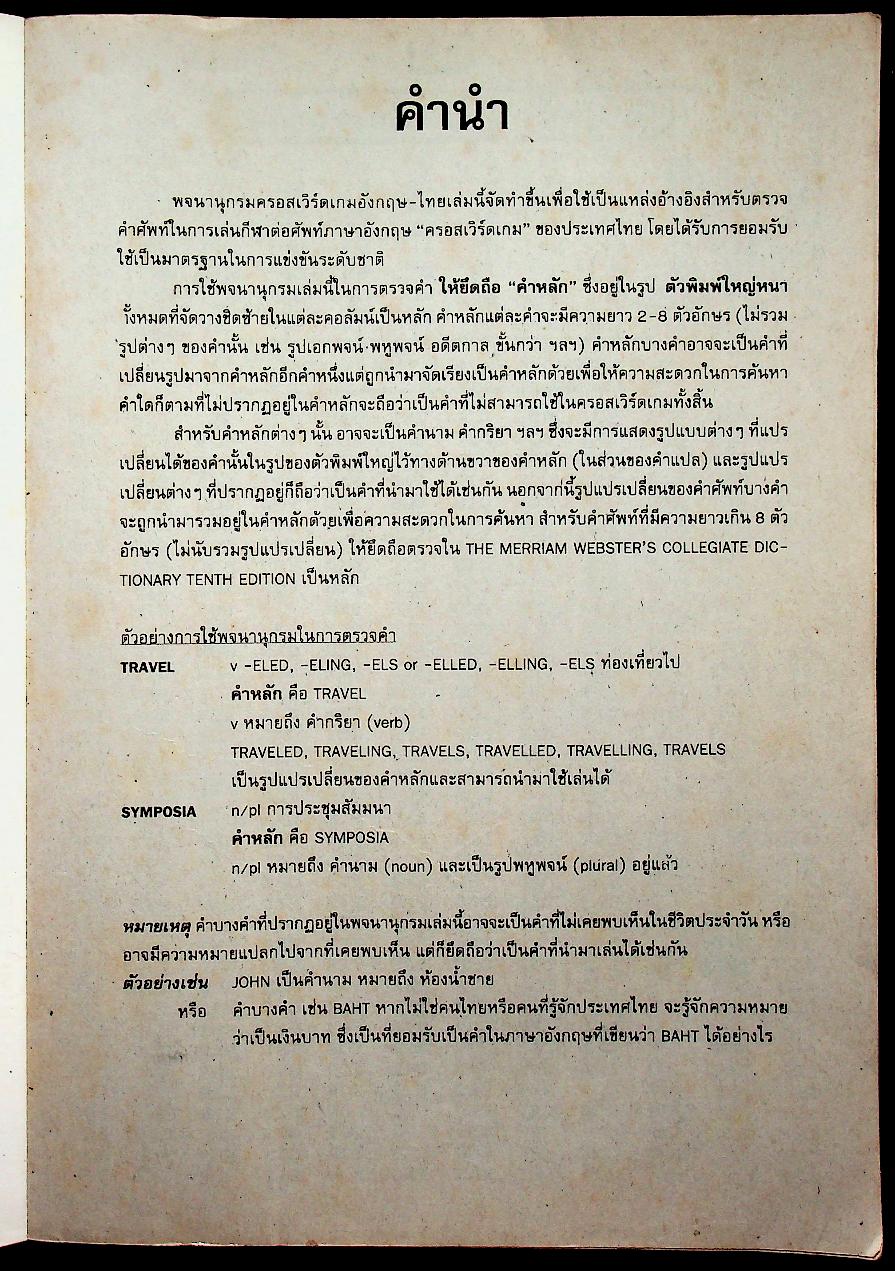 คำนำ
พจนานุกรมครอสเวิร์ดเกมอังกฤษ-ไทยเล่มนี้จัดทำขึ้นเพื่อใช้เป็นแหล่งอ้างอิงสำหรับตรวจ
คำศัพท์ในการเล่นกีฬาต่อศัพท์ภาษาอังกฤษ “ครอสเวิร์ดเกม” ของประเทศไทย โดยได้รับการยอมรับ
ใช้เป็นมาตรฐานในการแข่งขันระดับชาติ
การใช้พจนานุกรมเล่มนี้ในการตรวจคำ ให้ยึดถือ “คำหลัก” ซึ่งอยู่ในรูป ตัวพิมพ์ใหญ่หนา
ทั้งหมดที่จัดวางชิดซ้ายในแต่ละคอลัมน์เป็นหลัก คำหลักแต่ละคำจะมีความยาว 2-8 ตัวอักษร (ไม่รวม
รูปต่างๆ ของคำนั้น เช่น รูปเอกพจน์ พหูพจน์ อดีตกาล ขั้นกว่า ฯลฯ) คำหลักบางคำอาจจะเป็นคำที่
เปลี่ยนรูปมาจากคำหลักอีกคำหนึ่งแต่ถูกนำมาจัดเรียงเป็นคำหลักด้วยเพื่อให้ความสะดวกในการค้นหา
คำใดก็ตามที่ไม่ปรากฏอยู่ในคำหลักจะถือว่าเป็นคำที่ไม่สามารถใช้ในครอสเวิร์ดเกมทั้งสิ้น
สำหรับคำหลักต่างๆ นั้น อาจจะเป็นคำนาม คำกริยา ฯลฯ ซึ่งจะมีการแสดงรูปแบบต่างๆ ที่แปร
เปลี่ยนได้ของคำนั้นในรูปของตัวพิมพ์ใหญ่ไว้ทางด้านขวาของคำหลัก (ในส่วนของคำแปล) และรูปแปร
เปลี่ยนต่างๆ ที่ปรากฏอยู่ก็ถือว่าเป็นคำที่นำมาใช้ได้เช่นกัน นอกจากนี้รูปแปรเปลี่ยนของคำศัพท์บางคำ
จะถูกนำมารวมอยู่ในคำหลักด้วยเพื่อความสะดวกในการค้นหา สำหรับคำศัพท์ที่มีความยาวเกิน 8 ตัว
อักษร (ไม่นับรวมรูปแปรเปลี่ยน) ให้ยึดถือตรวจใน THE MERRIAM WEBSTER'S COLLEGIATE DIC-
TIONARY TENTH EDITION เป็นหลัก
ตัวอย่างการใช้พจนานุกรมในการตรวจคำ
TRAVEL v -ELED, -ELING, -ELS or -ELLED, -ELLING, -ELS ท่องเที่ยวไป
คำหลัก คือ TRAVEL
v หมายถึง คำกริยา (verb)
TRAVELED, TRAVELING, TRAVELS, TRAVELLED, TRAVELLING, TRAVELS
เป็นรูปแปรเปลี่ยนของคำหลักและสามารถนำมาใช้เล่นได้
SYMPOSIA n/pl การประชุมสัมมนา
คำหลัก คือ SYMPOSIA
n/pl หมายถึง คำนาม (noun) และเป็นรูปพหูพจน์ (plural) อยู่แล้ว
หมายเหตุ คำบางคำที่ปรากฏอยู่ในพจนานุกรมเล่มนี้อาจจะเป็นคำที่ไม่เคยพบเห็นในชีวิตประจำวัน หรือ
อาจมีความหมายแปลกไปจากที่เคยพบเห็น แต่ก็ยึดถือว่าเป็นคำที่นำมาเล่นได้เช่นกัน
ตัวอย่างเช่น JOHN เป็นคำนาม หมายถึง ห้องน้ำชาย
หรือ คำบางคำ เช่น BAHT หากไม่ใช่คนไทยหรือคนที่รู้จักประเทศไทย จะรู้จักความหมาย
ว่าเป็นเงินบาท ซึ่งเป็นที่ยอมรับเป็นคำในภาษาอังกฤษที่เขียนว่า BAHT ได้อย่างไร